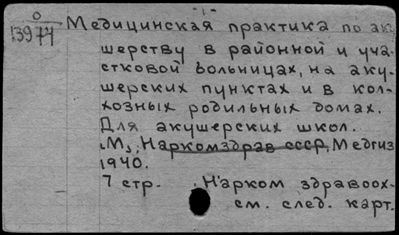 - 1 -
0
13977
Медицинская практика по аку-
шерству в районной и уча-
стковой больницах, на аку-
шерских пунктах и в кол-
хозных родильных домах.
Для акушерских школ.
М., Наркомздрав СССР, Медгиз
1940.
7 стр. Нарком здравоох-
см. след. карт.